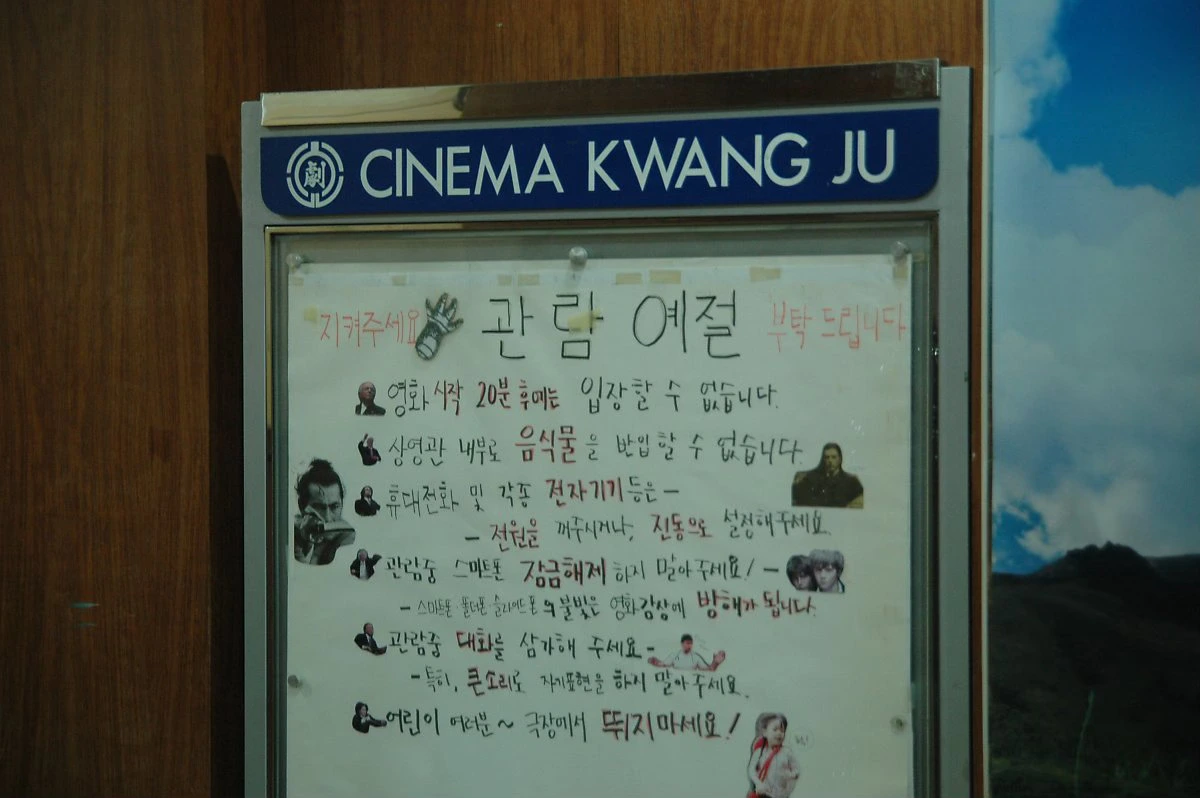 劇 CINEMA KWANG JU
지켜주세요 관람 예절 부탁 드립니다
영화 시작 20분 후에는 입장할 수 없습니다.
상영관 내부로 음식물을 반입할 수 없습니다.
휴대전화 및 각종 전자기기 등은 -
- 전원을 꺼주시거나, 진동으로 설정해주세요.
관람중 스마트폰 잠금해제 하지 말아주세요! -
- 스마트폰·폴더폰·슬라이드폰의 불빛은 영화감상에 방해가 됩니다.
관람중 대화를 삼가해 주세요 -
- 특히, 큰소리로 자기표현을 하지 말아주세요.
어린이 여러분~ 극장에서 뛰지마세요!